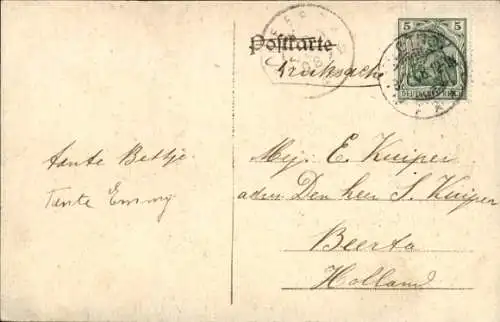 Postkarte
Drucksache
5 5
DEUTSCHES REICH
Mej. E. Kuiper
adres Den heer S. Kuiper
Beerta
Holland
tante Betje
Tante Emmy